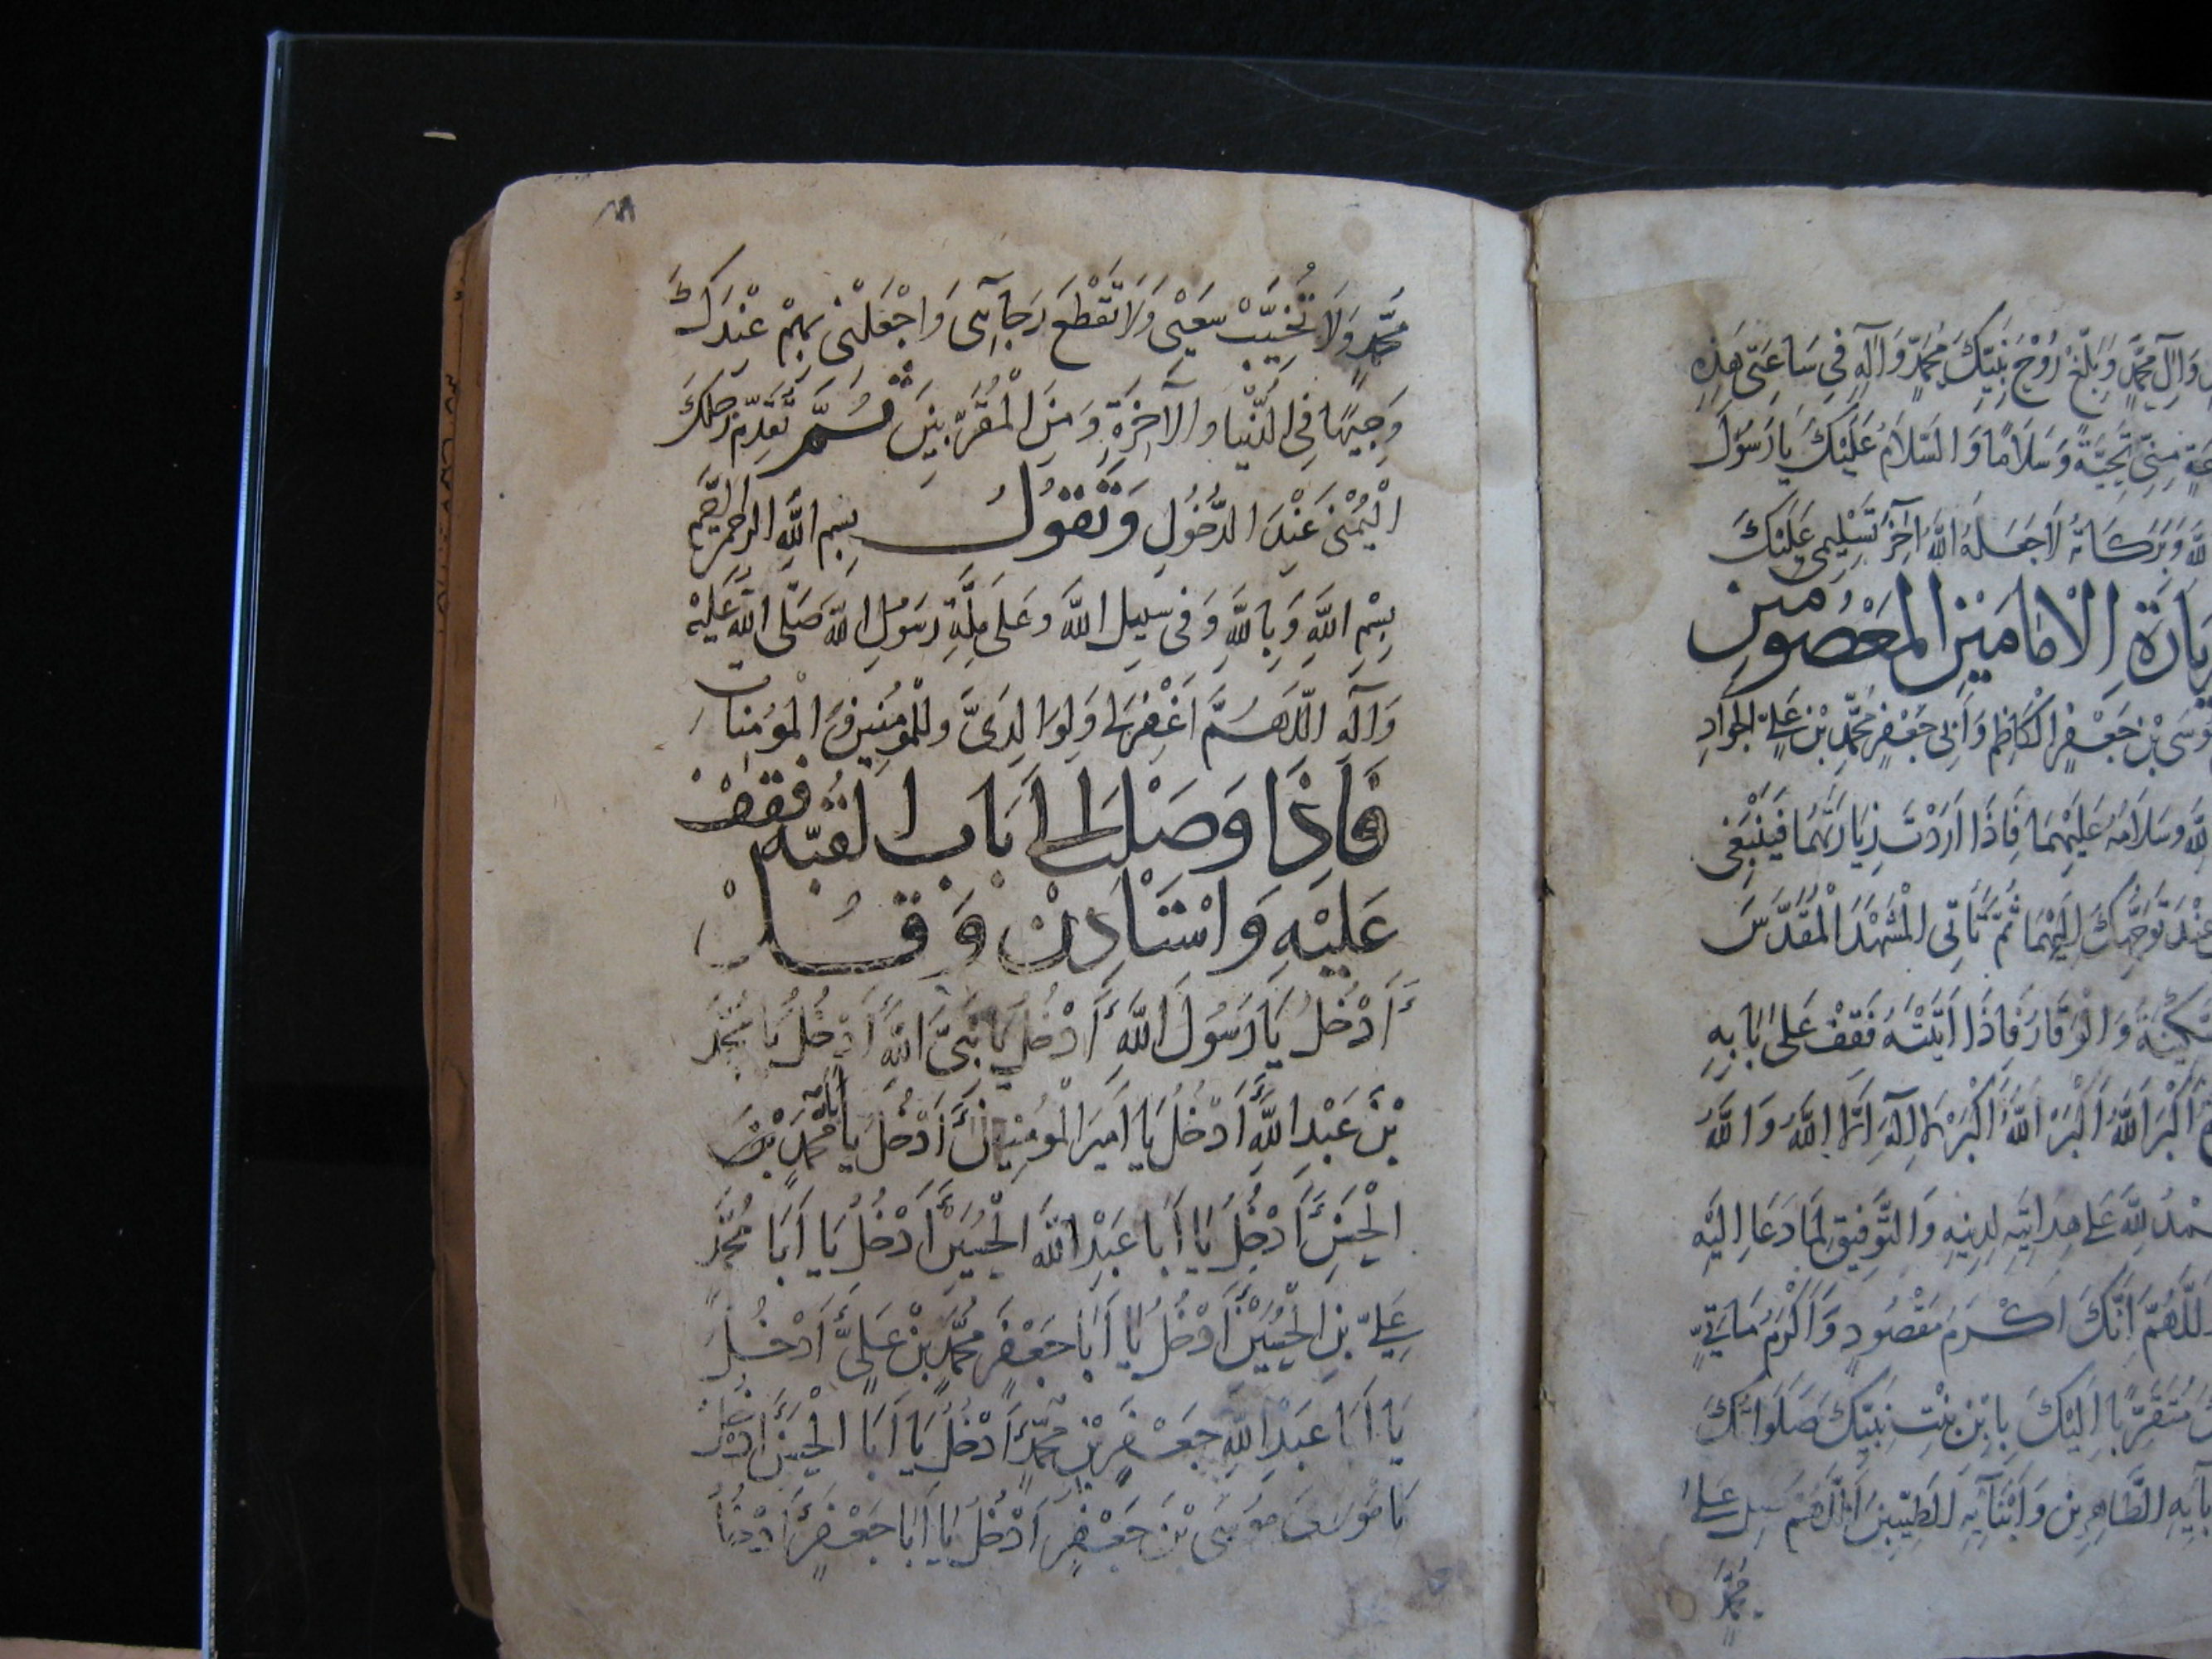 وَآلِ مُحَمَّدٍ وَبَلِّغْ رُوْحَ نَبِيِّكَ مُحَمَّدٍ وَآلِهِ فِي سَاعَتِي هَذِهِ
مِنِّي تَحِيَّةً وَسَلَامًا وَالسَّلَامُ عَلَيْكَ يَا رَسُوْلَ
اللهِ وَبَرَكَاتُهُ لَا جَعَلَهُ اللهُ آخِرَ تَسْلِيمِي عَلَيْكَ
زِيَارَةِ الْاِمَامَيْنِ الْمَعْصُومَيْنِ
مُوْسَى بْنِ جَعْفَرٍ الْكَاظِمِ وَأَبِي جَعْفَرٍ مُحَمَّدِ بْنِ عَلِيٍّ الْجَوَادِ
اللهِ وَسَلَامُهُ عَلَيْهِمَا فَاِذَا اَرَدْتَ زِيَارَتَهُمَا فَيَنْبَغِي
عِنْدَ تَوَجُّهِكَ اِلَيْهِمَا ثُمَّ تَأْتِي الْمَشْهَدَ الْمُقَدَّسَ
السَّكِيْنَةُ وَالْوَقَارُ فَاِذَا اَتَيْتَهُ فَقِفْ عَلَى بَابِهِ
اَكْبَرُ اللهُ اَكْبَرُ اللهُ اَكْبَرُ لَا اِلَهَ اِلَّا اللهُ وَاللهُ
الْحَمْدُ لِلهِ عَلَى هِدَايَتِهِ لِدِيْنِهِ وَالتَّوْفِيقِ لِمَا دَعَا اِلَيْهِ
اللَّهُمَّ اِنَّكَ اَكْرَمُ مَقْصُودٍ وَاَكْرَمُ مَأْتِيٍّ
مُتَقَرِّبًا اِلَيْكَ بِابْنِ بِنْتِ نَبِيِّكَ صَلَوَاتُكَ
آبَائِهِ الطَّاهِرِيْنَ وَاَبْنَائِهِ الطَّيِّبِيْنَ اَللَّهُمَّ صَلِّ عَلَى
مُحَمَّدٍ
مُحَمَّدٍ وَلَا تُخَيِّبْ سَعْيِي وَلَا تَقْطَعْ رَجَائِي وَاجْعَلْنِي بِهِمْ عِنْدَكَ
وَجِيْهًا فِي الدُّنْيَا وَالْآخِرَةِ وَمِنَ الْمُقَرَّبِيْنَ ثُمَّ تُقَدِّمُ رِجْلَكَ
الْيُمْنَى عِنْدَ الدُّخُوْلِ وَتَقُوْلُ بِسْمِ اللهِ الرَّحْمٰنِ الرَّحِيْمِ
بِسْمِ اللهِ وَبِاللهِ وَفِي سَبِيلِ اللهِ وَعَلَى مِلَّةِ رَسُوْلِ اللهِ صَلَّى اللهُ عَلَيْهِ
وَآلِهِ اللَّهُمَّ اغْفِرْ لِي وَلِوَالِدَيَّ وَلِلْمُؤْمِنِيْنَ وَالْمُؤْمِنَاتِ
فَاِذَا وَصَلْتَ اِلَى بَابِ الْقُبَّهِ فَقِفْ
عَلَيْهِ وَاسْتَاْذِنْ وَ قُلْ
ءَاَدْخُلُ يَا رَسُوْلَ اللهِ ءَاَدْخُلُ يَا نَبِيَّ اللهِ ءَاَدْخُلُ يَا مُحَمَّدَ
بْنَ عَبْدِ اللهِ ءَاَدْخُلُ يَا اَمِيرَ الْمُؤْمِنِينَ ءَاَدْخُلُ يَا اَبَا مُحَمَّدٍ
الْحَسَنَ ءَاَدْخُلُ يَا اَبَا عَبْدِ اللهِ الْحُسَيْنَ ءَاَدْخُلُ يَا اَبَا مُحَمَّدٍ
عَلِيَّ بْنَ الْحُسَيْنِ ءَاَدْخُلُ يَا اَبَا جَعْفَرٍ مُحَمَّدَ بْنَ عَلِيٍّ ءَاَدْخُلُ
يَا اَبَا عَبْدِ اللهِ جَعْفَرَ بْنَ مُحَمَّدٍ ءَاَدْخُلُ يَا اَبَا الْحَسَنِ ءَاَدْخُلُ
يَا مُوْسَى بْنَ جَعْفَرٍ ءَاَدْخُلُ يَا اَبَا جَعْفَرٍ